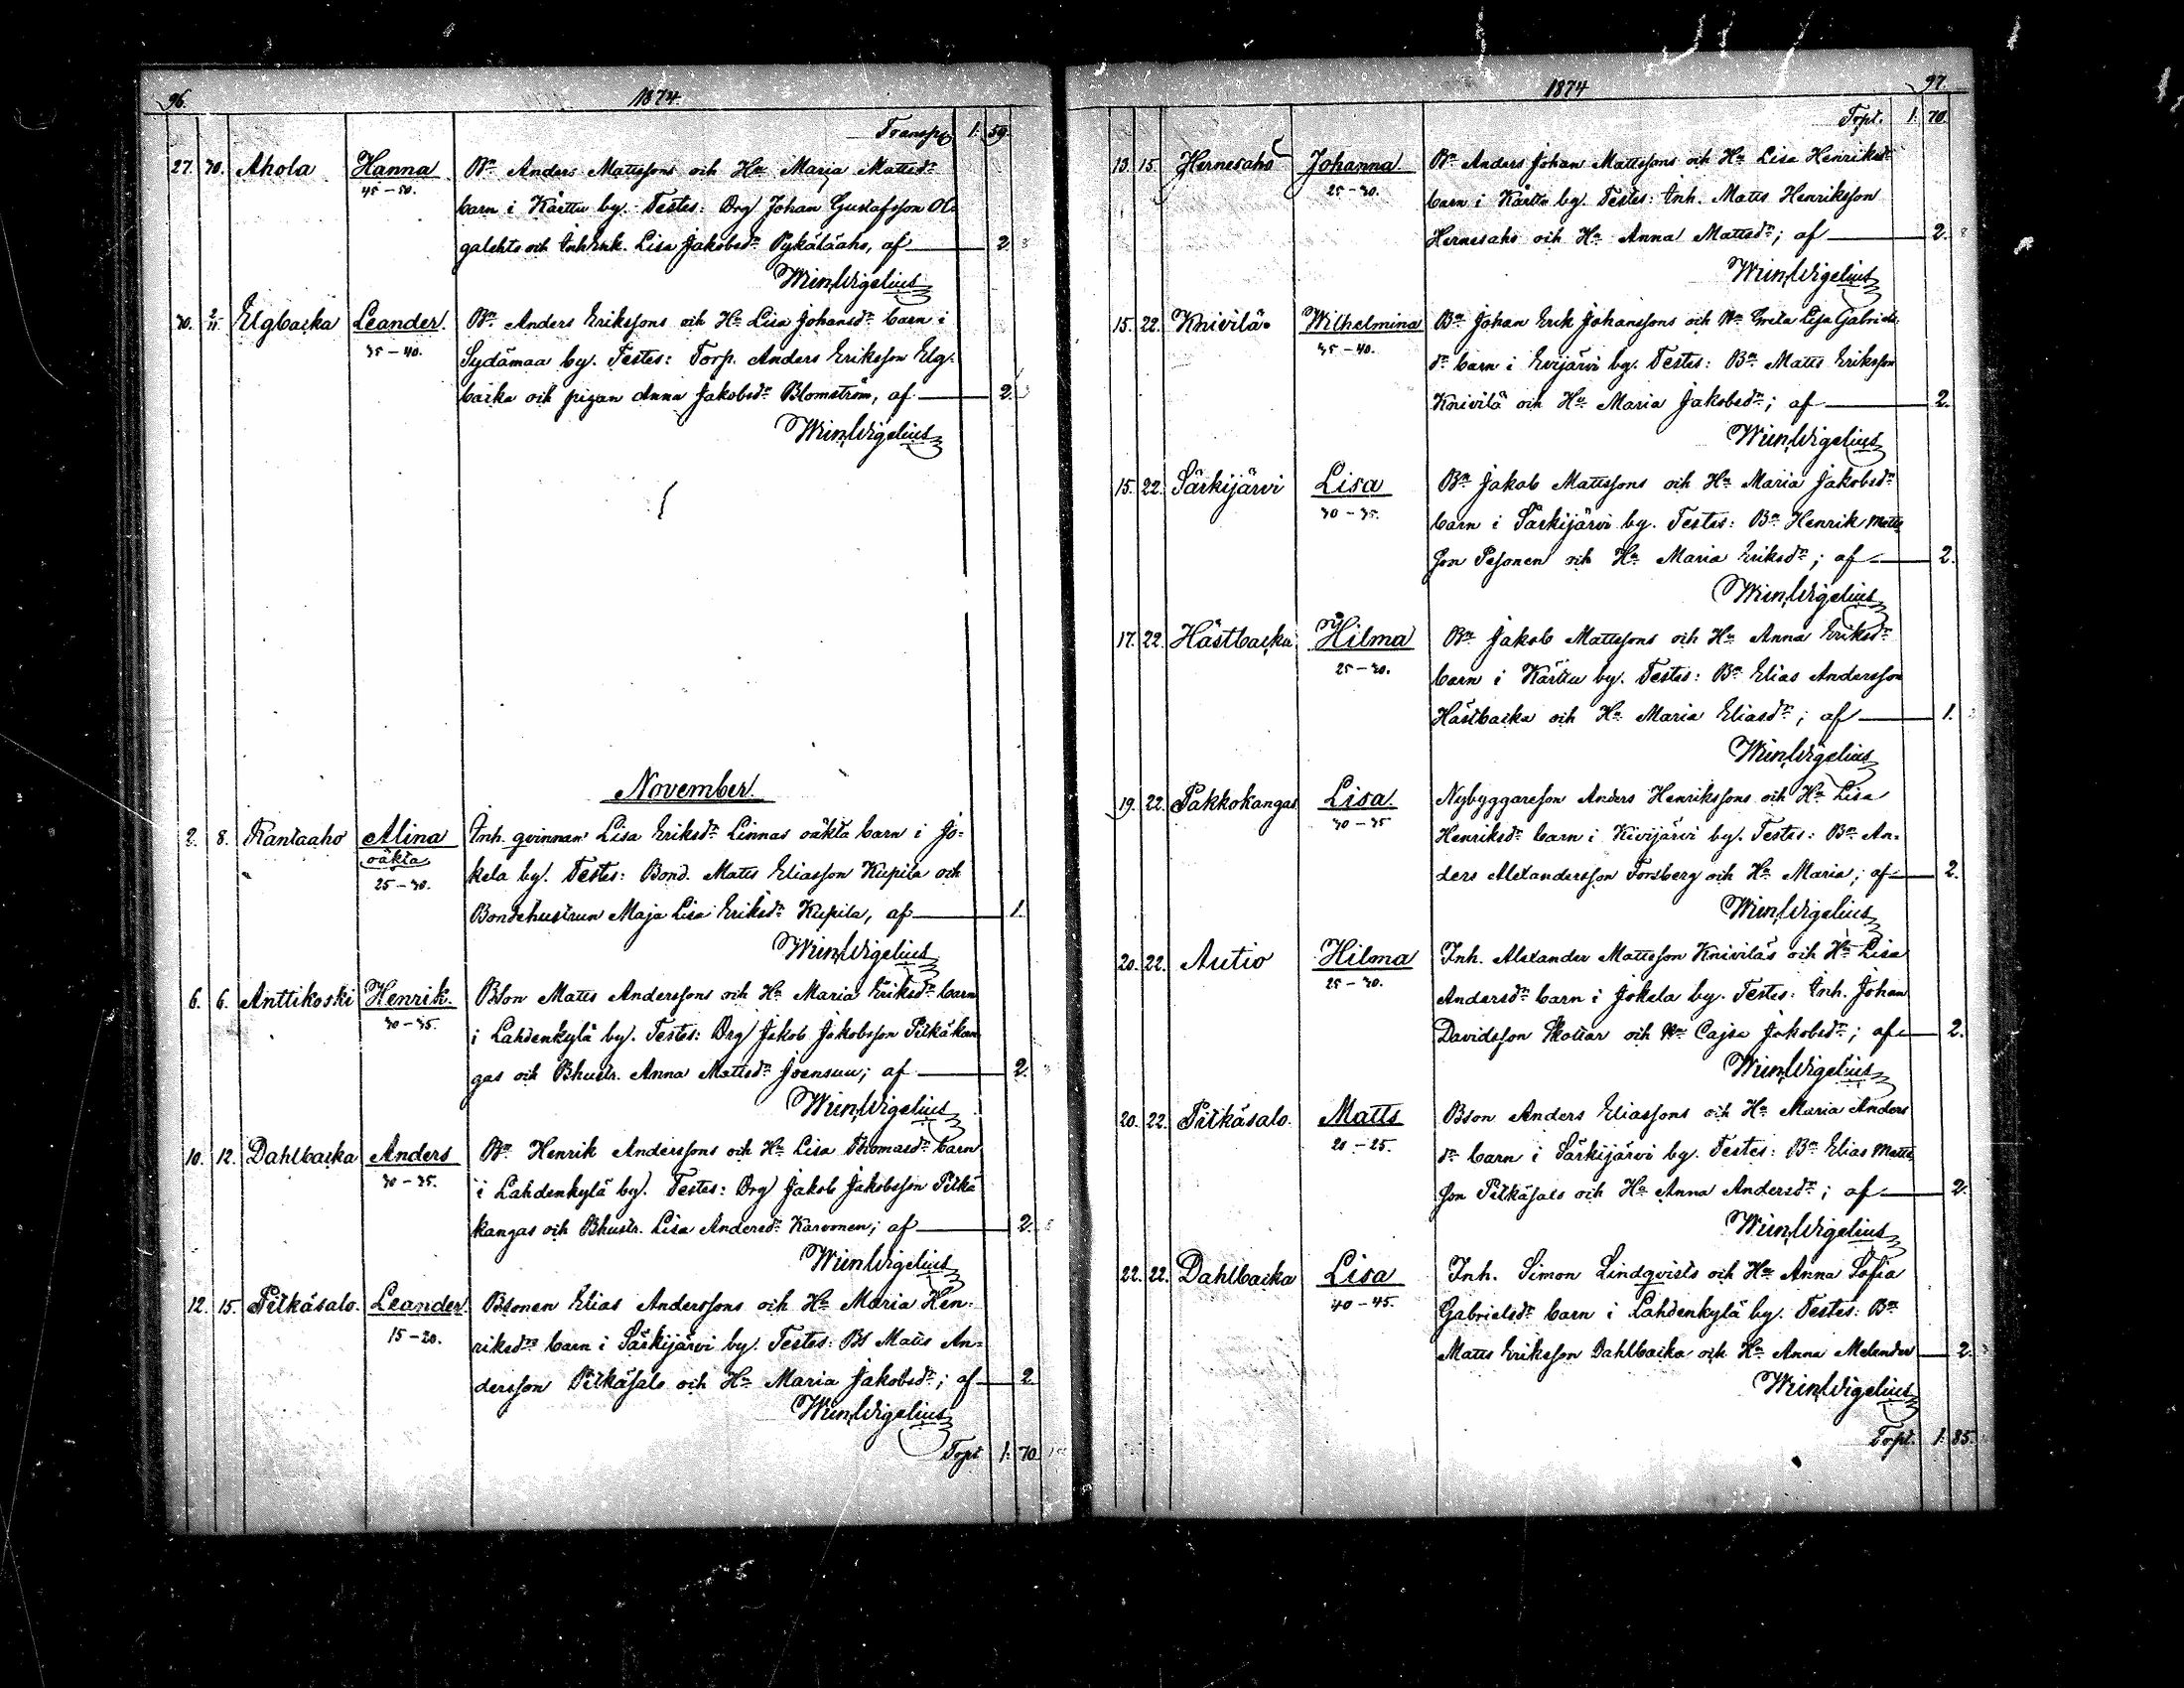 96. 1874.
Transp. 1. 59.
27. 30. Ahola Hanna Bn Anders Mattssons och Hu Maria Mattsdr
45-50. barn i Kärttu by. Testes: Drg Johan Gustafsson
galehto och Inh Enk. Lisa Jakobsdr Pykäläaho, af 2.
Wm Wigelius
30. 2/11. Elgbacka Leander. Bn Anders Erikssons och Hu Lisa Johansdr barn i
35-40. Sydämaa by. Testes: Torp. Anders Eriksson Elg-
backa och pigan Anna Jakobsdr Blomström, af 2.
Wm Wigelius
November.
2. 8. Rantaaho Alina Inh. qvinnan Lisa Eriksdr Linnas oäkta barn i Jo-
oäkta kela by. Testes: Bond. Matts Eliasson Kupila och
25-30. Bondehustrun Maja Lisa Eriksdr Kupila, af 1.
Wm Wigelius
6. 6. Anttikoski Henrik. Bson Matts Anderssons och Hu Maria Eriksdr barn
30-35. i Lahdenkylä by. Testes: Drg Jakob Jakobsson Pitkäkan
gas och Bhustr. Anna Mattsdr Joensuu; af 2.
Wm Wigelius
10. 12. Dahlbacka Anders Bn Henrik Anderssons och Hu Lisa Thomasdr barn
30-35. i Lahdenkylä by. Testes: Drg Jakob Jakobsson Pitkä
kangas och Bhustr. Lisa Andersdr Karvonen; af 2.
Wm Wigelius
12. 15. Pitkäsalo. Leander. Bsonen Elias Anderssons och Hu Maria Hen-
15-20. riksdrs barn i Särkijärvi by. Testes: Bs Matts An-
dersson Pitkäsalo och Hu Maria Jakobsdr; af 2.
Wm Wigelius
Trpt 1. 70
1874 97.
Trpt. 1. 70.
13. 15. Hernesaho Johanna Bn Anders Johan Mattssons och Hu Lisa Henriksdr
25-30. barn i Kärttu by. Testes: Inh. Matts Henriksson
Hernesaho och Hu Anna Mattsdr; af 2.
Wm Wigelius
15. 22. Knivilä. Wilhelmina Bn Johan Erik Johanssons och Hu Greta Lisa Gabriels
35-40. dr barn i Evijärvi by. Testes: Bn Matts Eriksson
Knivilä och Hu Maria Jakobsdr; af 2.
Wm Wigelius
15. 22. Särkijärvi Lisa Bn Jakob Mattssons och Hu Maria Jakobsdr
30-35. barn i Särkijärvi by. Testes: Bn Henrik Matts
son Pesonen och Hu Maria Eriksdr; af 2.
Wm Wigelius
17. 22. Hästbacka Hilma Bn Jakob Mattssons och Hu Anna Eriksdr
25-30. barn i Kärttu by. Testes: Bn Elias Andersson
Hästbacka och Hu Maria Eliasdr; af 1.
Wm Wigelius
19. 22. Pakkokangas Lisa. Nybyggareson Anders Henrikssons och Hu Lisa
30-35 Henriksdr barn i Kivijärvi by. Testes: Bn An-
ders Alexandersson Forsberg och Hu Maria; af 2.
Wm Wigelius
20. 22. Autio Hilma Inh. Alexander Mattsson Kniviläs och Hu Lisa
25-30. Andersdr barn i Jokela by. Testes: Inh. Johan
Davidsson Skottar och Hu Cajsa Jakobsdr; af 2.
Wm Wigelius
20. 22. Pitkäsalo. Matts Bson Anders Eliassons och Hu Maria Anders
20-25. dr barn i Särkijärvi by. Testes: Bn Elias Matts
son Pitkäsalo och Hu Anna Andersdr; af 2.
Wm Wigelius
22. 22. Dahlbacka Lisa Inh. Simon Lindqvists och Hu Anna Sofia
40-45. Gabrielsdr barn i Lahdenkylä by. Testes: Bn
Matts Eriksson Dahlbacka och Hu Anna Melander 2.
Wm Wigelius
Trpt. 1. 85.